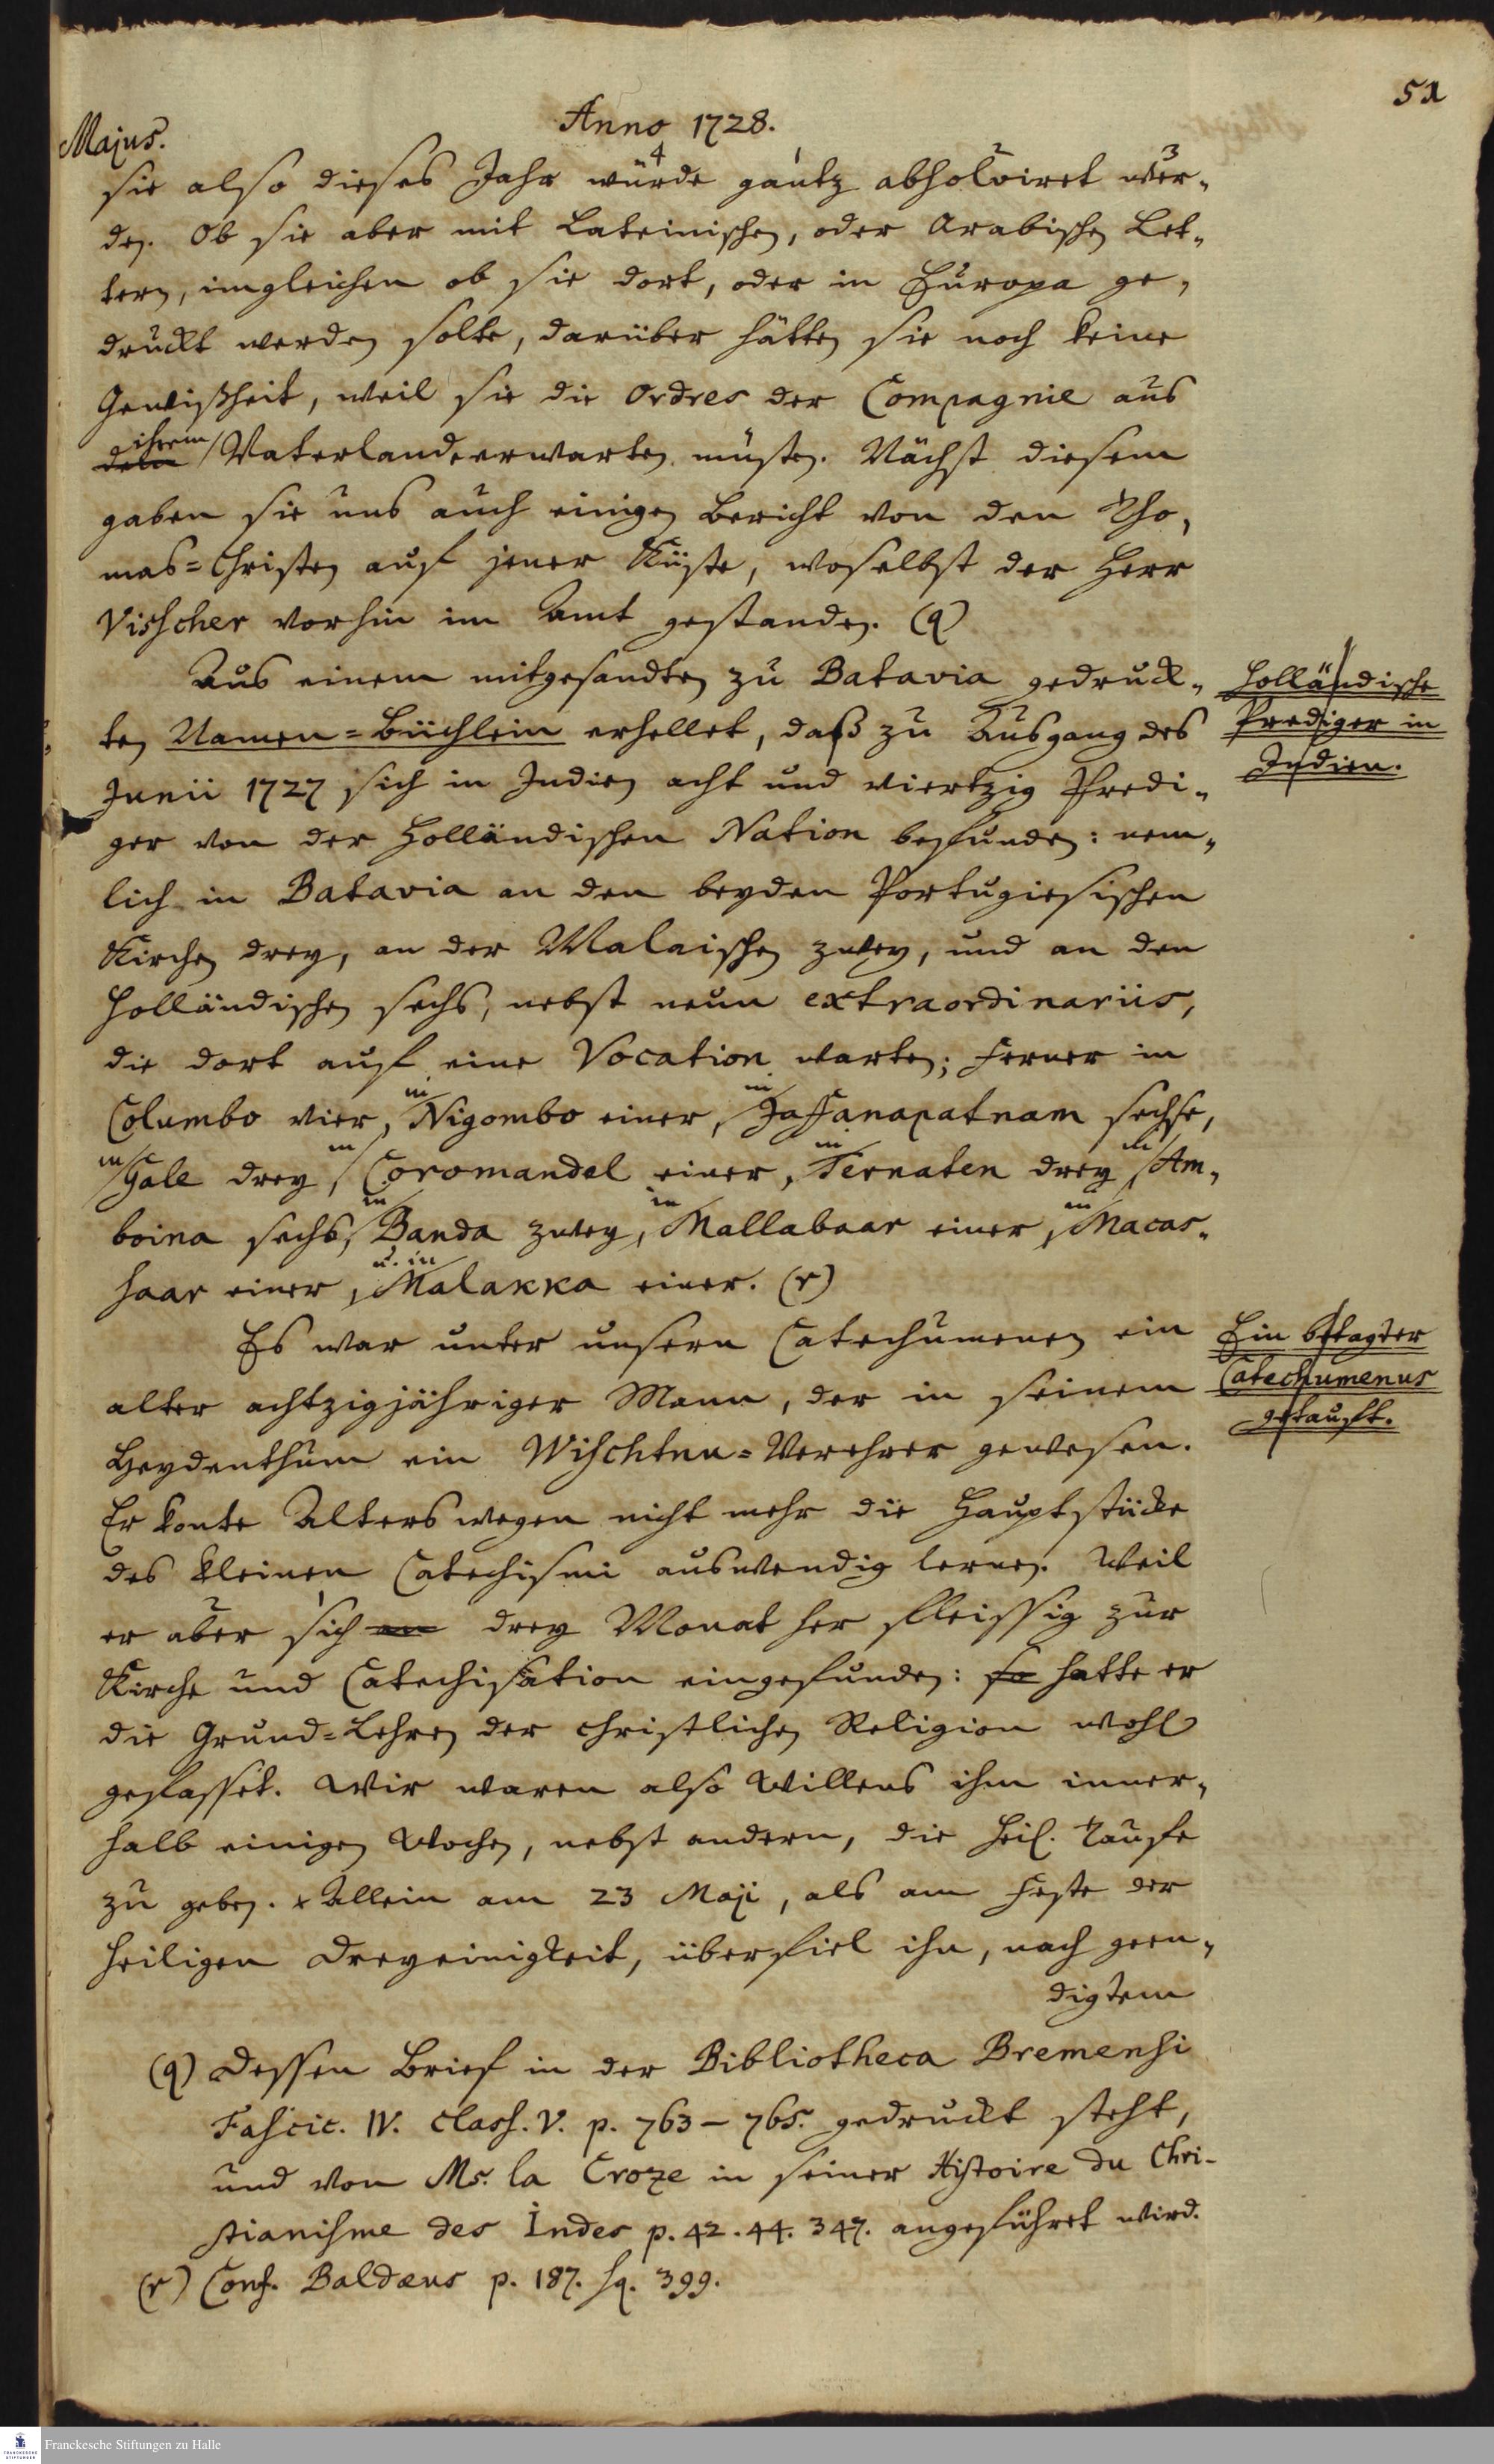 51
Majus.
Anno 1728.
sie also dieses Jahr würde gantz absolviret wer-
den. Ob sie aber mit Lateinischen, oder Arabischen Let-
tern, imgleichen ob sie dort, oder in Europa ge-
druckt werden solte, darüber hätten sie noch keine
Gewißheit, weil sie die Ordres der Compagnie aus
ihrem
dem Vaterlande erwarten müsten. Nächst diesem
gaben sie uns auch einigen Bericht von den Tho-
mas=Christen auf jener Küste, woselbst der Herr
Visscher vorhin im Amt gestanden. (q)
Aus einem mitgesandten zu Batavia gedruck-
ten Namen=Büchlein erhellet, daß zu Ausgang des
Junii 1727 sich in Indien acht und viertzig Predi-
ger von der Holländischen Nation befunden: nem-
lich in Batavia an den beyden Portugiesischen
Kirchen drey, an der Malaischen zwey, und an den
Holländischen sechs, nebst neun extraordinariis,
die dort auf eine Vocation warten; ferner in
Columbo vier, in Nigombo einer, in Jaffanapatnam sechse,
in Gale drey, in Coromandel einer, in Ternaten drey, in Am-
boina sechs, in Banda zwey, in Mallabaar einer, in Macas-
saar einer, u. in Malakka einer. (r)
Holländische
Prediger in
Indien.
Es war unter unsern Catechumenen ein
alter achtzigjähriger Mann, der in seinem
Heydenthum ein Wischtnu=Verehrer gewesen.
Er konte Alters wegen nicht mehr die Hauptstücke
des kleinen Catechismi auswendig lernen. Weil
er aber sich an drey Monat her fleissig zur
Kirche und Catechisation eingefunden: so hatte er
die Grund=Lehren der christlichen Religion wohl
gefasset. Wir waren also Willens ihm inner-
halb einigen Wochen, nebst andern, die Heil. Taufe
zu geben. Allein am 23 Maji, als am Feste der
heiligen Dreyeinigkeit, überfiel ihn, nach geen-
digtem
Ein betagter
Catechumenus
getauft.
(q) Dessen Brief in der Bibliotheca Bremensi
Fascic. IV. Class. V. p. 763-765. gedruckt steht,
und von Mr. la Croze in seiner Histoire du Chri-
stianisme des Indes p. 42. 44. 347. angeführet wird.
(r) Conf. Baldæus p. 187. sq. 399.
Franckesche Stiftungen zu Halle